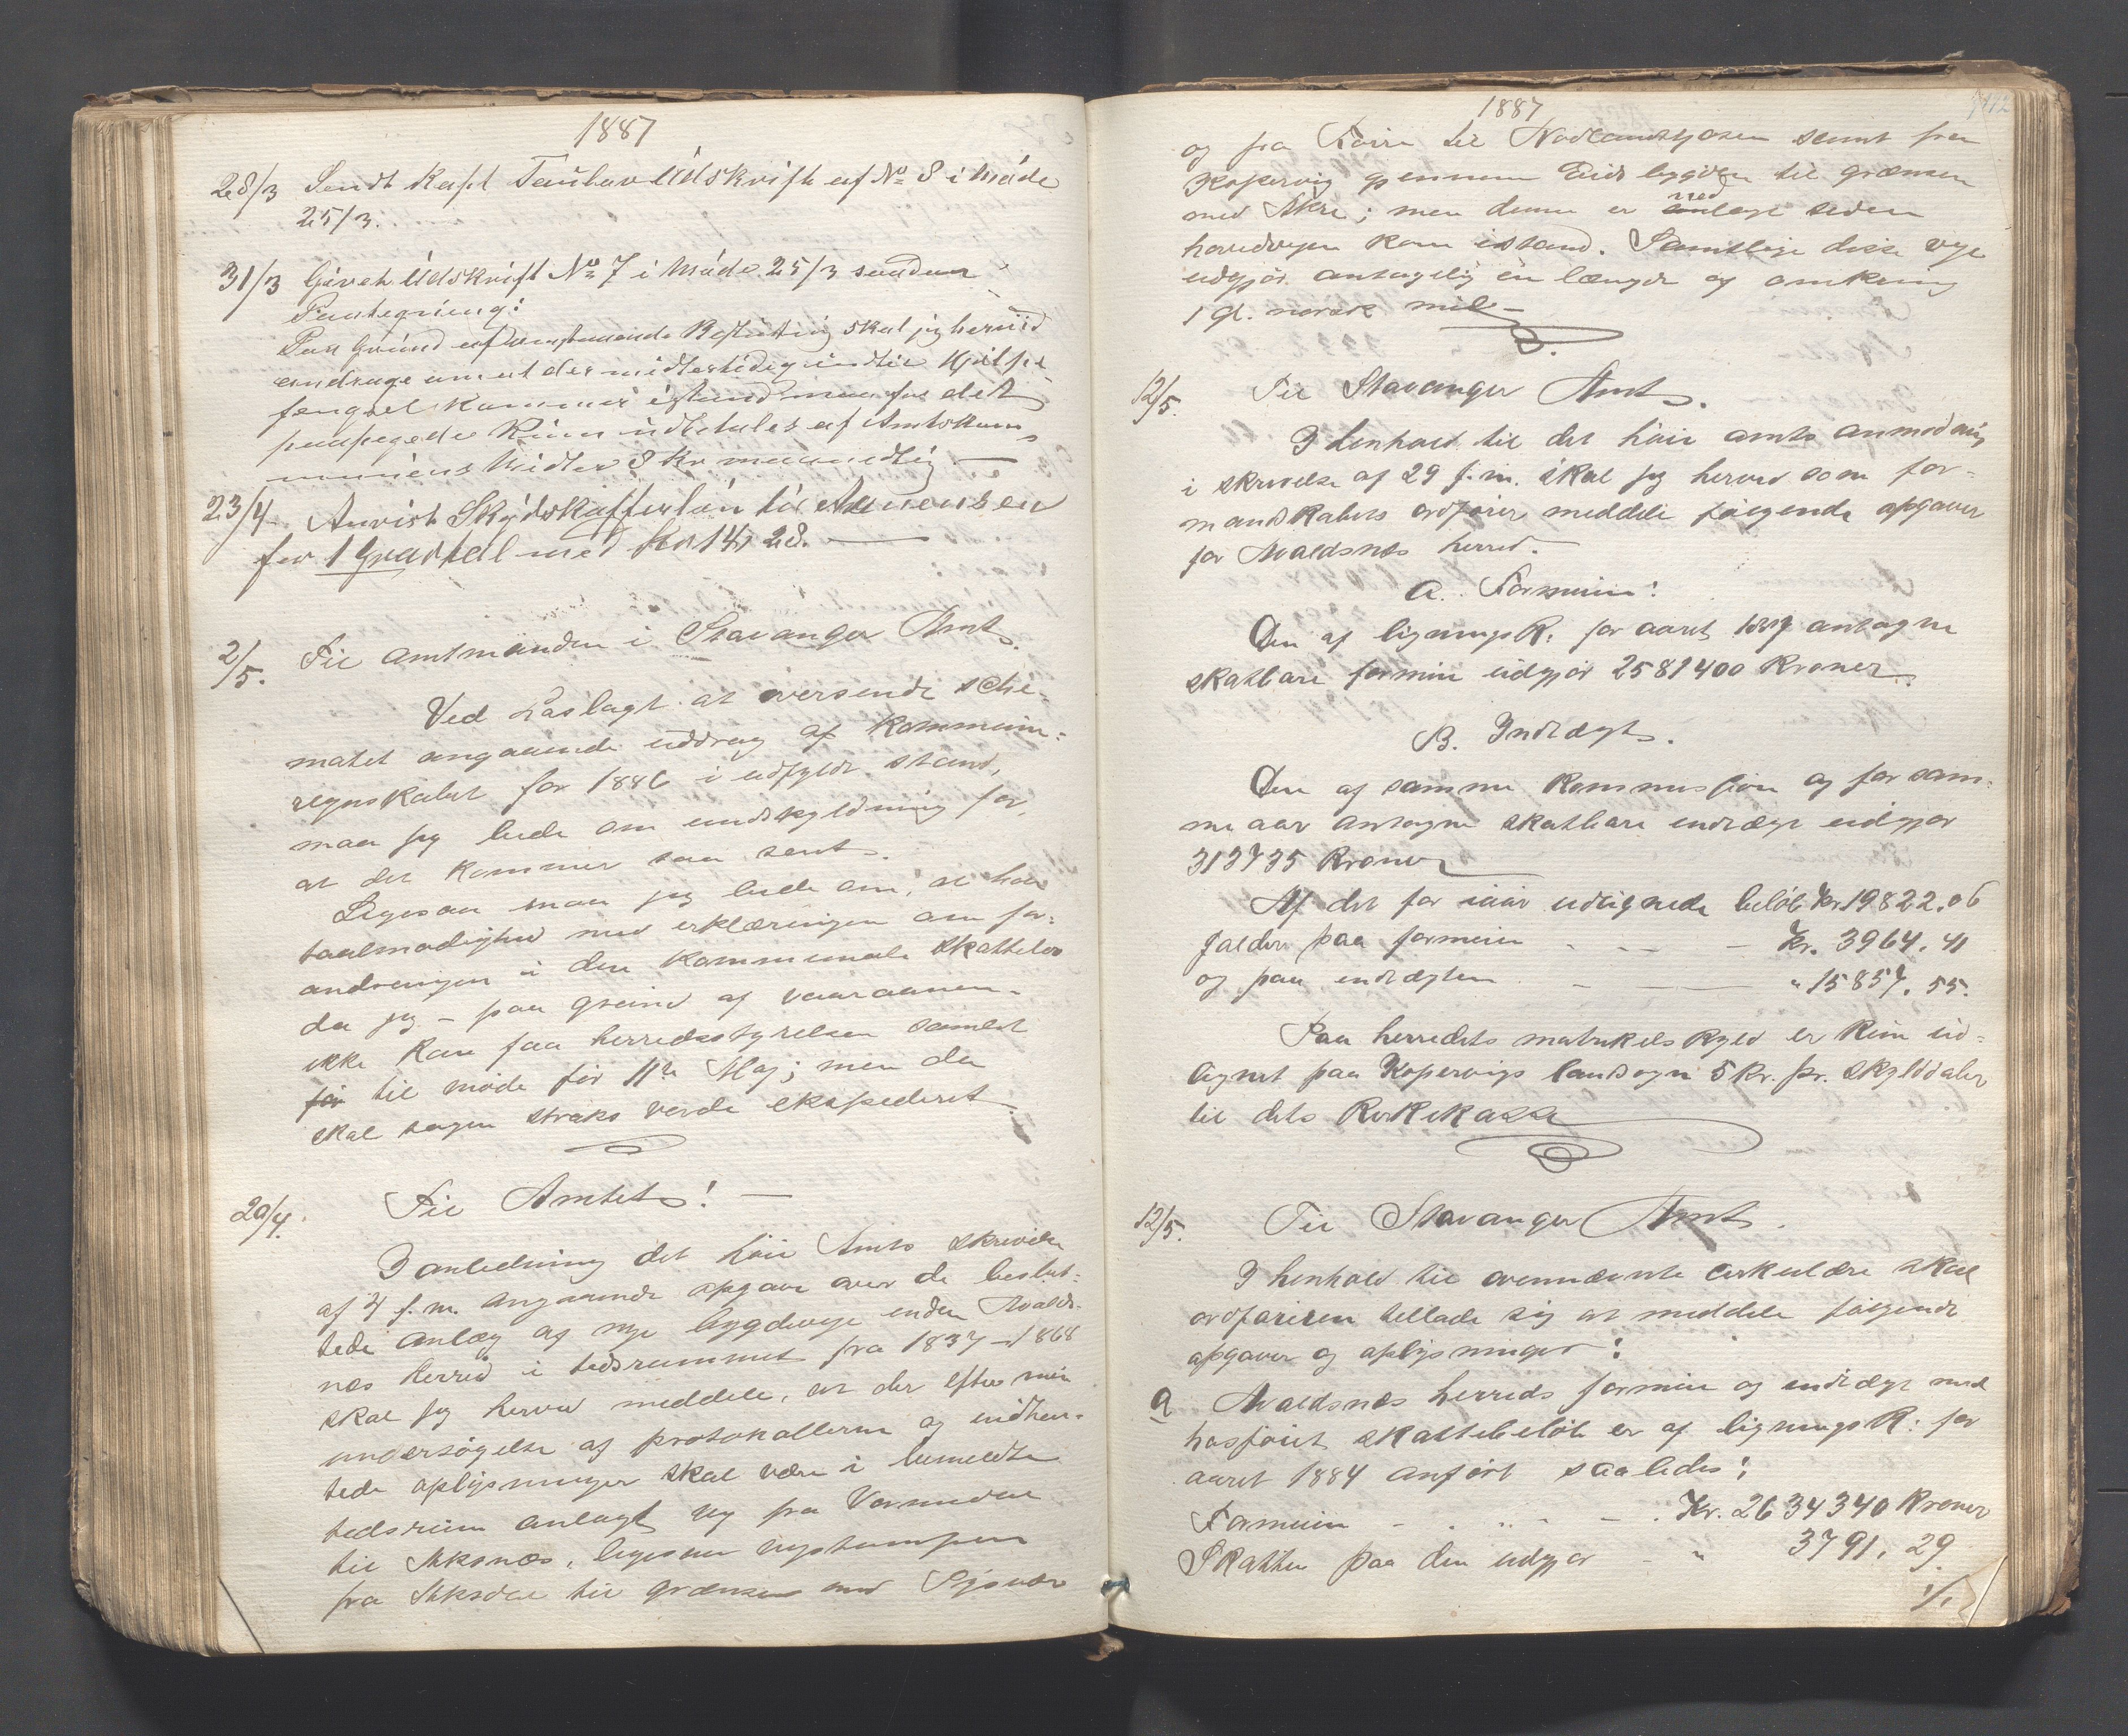 1887
28/3 Sendt Kapt Tauber Udskrift af No 8 i Møde
25/3.
31/3 Givet Udskrift No 7 i Møde 25/3 saadan
Paategning:
Paa Grund af omstaaende Beslutning skal jeg herved
andrage om at der midlertidig indtil Hjælpe-
fængsel kommer istand maa for det
paapegede Rum udbetales af Amtskom-
muniens Midler 8 Kr maanedlig
23/4 Anvist Skydsskafferløn til Aanensen
for 1 Qvartal med Kr 14, 28.
2/5. Til amtmanden i Stavanger Amt.
Ved Låslagt at oversende sche-
matet angaaende uddrag af kommune-
regnskabet for 1886 i udfyldt stand,
maa jeg bede om undskyldning for,
at det kommer saa sent.
Ligesaa maa jeg bede om, at have
taalmodighed med erklæringen om for-
andringen i den kommunale skattelov
da jeg – paa grund af vaaraannen
ikke kan faa herredsstyrelsen samlet
før til møde før 11te Maj; men da
skal sagen straks verde ekspederet.
20/4. Til Amtet! –
I anledning det høie Amts skrivelse
af 4 f. m. angaaende opgave over de beslut-
tede anlæg af nye bygdeveje inden Avalds-
næs herred i tidsrummet fra 1837 – 1868
skal jeg herved meddele, at der efter min
undersøgelse af protokollerne og indhen-
tede oplysninger skal være i bemeldte
tidsrum anlagt vej fra Vormedal
til Aksnæs, ligesaa vejstumpen
fra Aksdal til grænsen med Skjold
1887
og fra til samt fra
Kopervig gjennem Eidsbygden til grænsen
med Akre; men denne er nedlagt siden
hovedvejen kom istand. Samtlige disse veje
udgjør antagelig en længde af omkring
1 gl. norsk mil –
12/5. Til Stavanger Amt.
I henhold til det høie amts anmodning
i skrivelse af 29 f. m. skal jeg herved som for-
mandskabets ordfører meddele følgende opgaver
for Avaldsnæs herred.
A. Formuen:
Den af ligningsk: for aaret 1887 antagne
skatbare formue udgjør 2581400 Kroner.
B. Indtægt.
Den af samme kommission og for sam-
me aar antagne skatbare indtægt udgjør
313735 Kroner
Af det for iaar udlignede beløb Kr. 19822.06
falder paa formuen – Kr. 3964. 41
og paa indtægten – " 15857. 55.
Paa herredets matrikelskyld er kun ud-
lignet paa Kopervigs landsogn 5 kr. pr. skylddaler
til dets Kirkekasse
12/5. Til Stavanger Amt.
I henhold til ovennævnte cirkulære skal
ordføreren tillade sig at meddele følgende
opgaver og oplysninger:
a Avaldsnæs herreds formue og indtægt med
hosføiet skattebeløb er af ligningsk: for
aaret 1884 anført saaledes:
Formuen – – Kr. 2634340 Kroner
Skatten paa den udgjør – " 3791. 29.